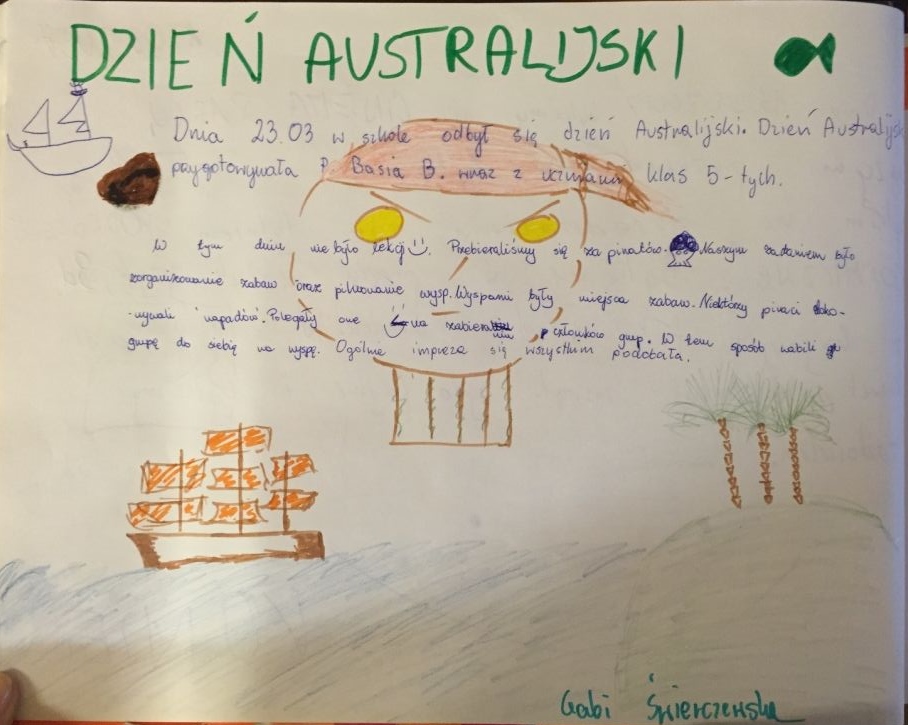 DZIEŃ AUSTRALIJSKI
Dnia 23.03 w szkole odbył się dzień Australijski. Dzień Australijsk
przygotowywała P. Basia B. wraz z uczniami klas 5-tych.
W tym dniu nie było lekcji. Przebieraliśmy się za piratów. Naszym zadaniem było
zorganizowanie zabaw oraz pilnowanie wysp. Wyspami były miejsca zabaw. Niektórzy piraci doko-
-nywali napadów. Polegały one na członków grup. W ten sposób wabili
grupę do siebię na wyspę. Ogólnie impreza się wszystkim podobała.
Gabi Świerczewska